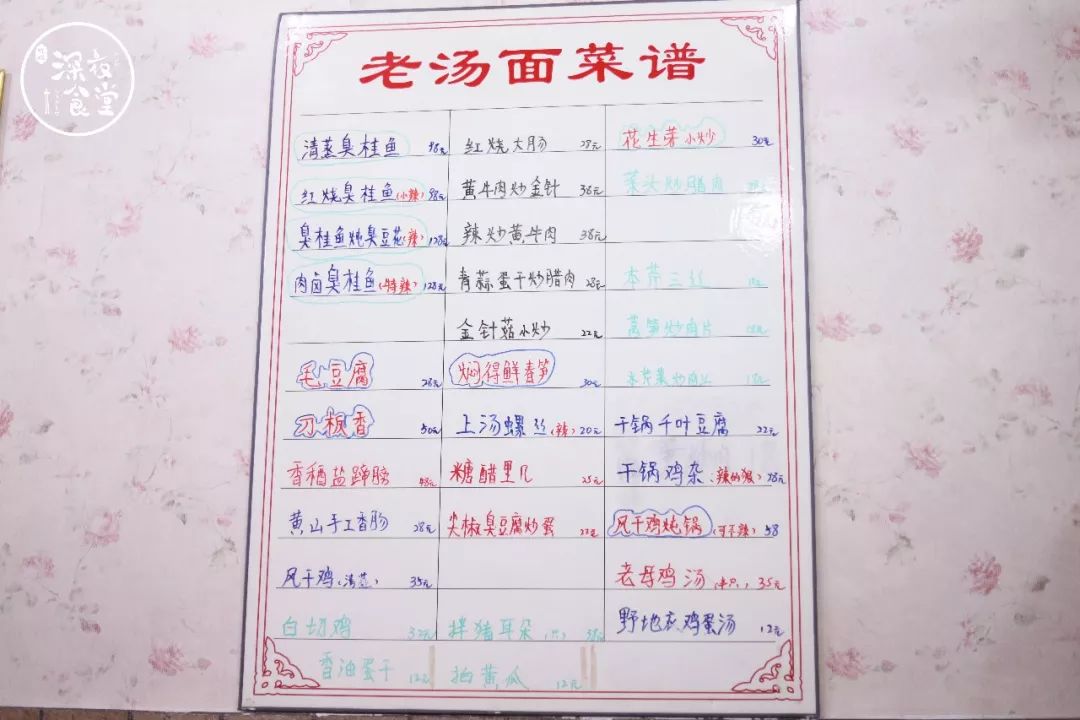 深夜食堂
老汤面菜谱
清蒸臭桂鱼 98元 红烧大肠 28元 花生芽小炒 30元
红烧臭桂鱼(小辣) 98元 黄牛肉炒金针 38元 菜头炒腊肉
臭桂鱼炖臭豆花(辣) 128元 辣炒黄牛肉 38元
肉卤臭桂鱼(特辣) 128元 青蒜蛋干炒腊肉 28元 本芹三丝
金针菇小炒 22元 莴笋炒肉片 18元
毛豆腐 28元 焖得鲜春笋 30元 水芹菜炒肉丝 18元
刀板香 50元 上汤螺丝(辣) 20元 干锅千叶豆腐 22元
香稻盐蹄膀 48元 糖醋里几 25元 干锅鸡杂(辣的狠) 28元
黄山手工香肠 28元 尖椒臭豆腐炒蛋 22元 风干鸡炖锅(可不辣) 58
风干鸡(清蒸) 35元 老母鸡汤 35元
白切鸡 32元 拌猪耳朵 38元 野地衣鸡蛋汤 12元
香油蛋干 12元 拍黄瓜 12元